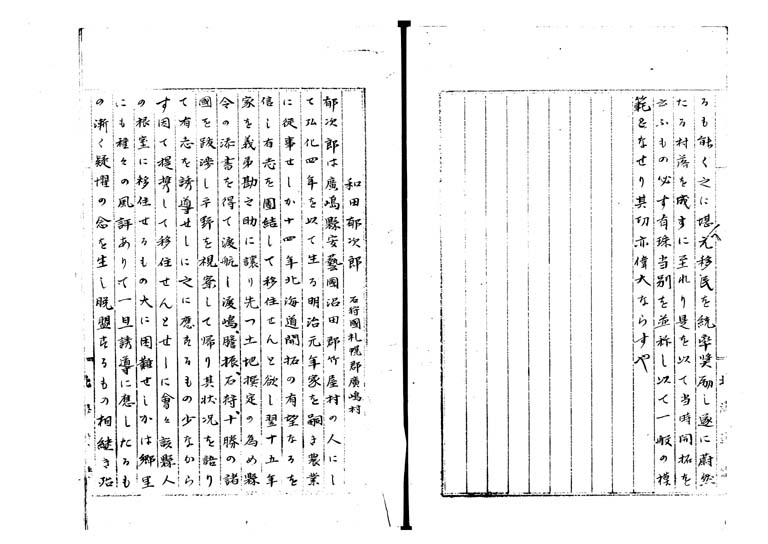 るも能く之に堪へ元移民を統率奨励し遂に蔚然
たる村落を成すに至れり是を以て当時開拓を
云ふもの必す有珠当別を並称し以て一般の模
範となせり其功亦偉大ならすや
和田郁次郎 石狩國札幌郡廣嶋村
郁次郎は廣嶋縣安藝國沼田郡竹屋村の人にし
て弘化四年を以て生る明治元年家を嗣き農業
に従事せしか十四年北海道開拓の有望なるを
信し有志を團結して移住せんと欲し翌十五年
家を義弟勘之助に譲り先つ土地撰定の為め縣
令の添書を得て渡航し渡嶋、膽振、石狩、十勝の諸
國を跋渉し平野を視察して帰り其状况を語り
て有志を誘導せしに之に應するもの少なから
す因て提携して移住せんとせしに會々該縣人
の根室に移住せるもの大に困難せしかは郷里
にも種々の風評ありて一旦誘導に應したるも
の漸く疑懼の念を生し脱盟するもの相継き殆